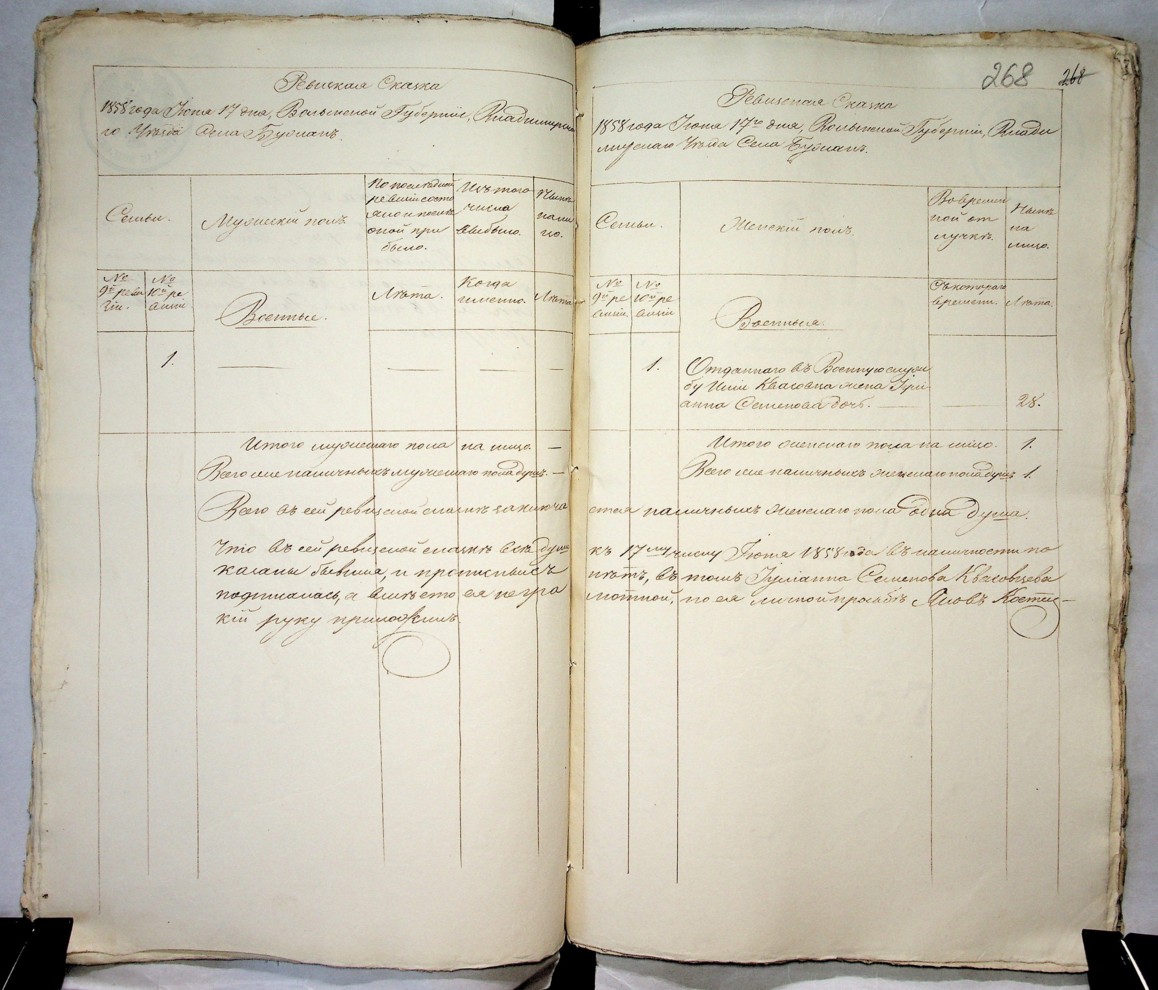 Ревизская Сказка
1858 года Июня 17 дня, Волынской Губернии, Владимирска
го Уѣзда Села
Семьи.
Мужескій полъ
По последней
ревизіи состо
яло и послѣ
оной при
было.
Изъ того
числа
выбыло.
Нынѣ
на ли
цо.
№
9й реви
зіи.
№
10й ре
визіи
Военные.
Лѣта.
Когда
именно.
Лѣта
1.
Итого мужескаго пола на лицо. —
Всего же наличныхъ мужескаго пола душъ —
268
268
Ревизская Сказка
1858 года Июня 17го дня, Волынской Губерніи, Влади
мирскаго Уѣзда Села
Семьи.
Женскій полъ.
Во времян
ной от
лучкѣ.
Нынѣ
на
лицо.
№
9й ре
визіи.
№
10й ре
визіи
Военныя.
Съ котораго
времени.
Лѣта.
1.
Отданнаго въ Военную служ
бу жена Ули
анна Семенова дочь. — 28.
Итого женскаго пола на лицо. 1.
Всего же наличныхъ женскаго пола душъ 1.
Всего въ сей ревизской сказкѣ заключа ется наличныхъ женскаго пола одна душа.
Что въ сей ревизской сказкѣ всѣ души къ 17му числу Июня 1858 года въ наличности по
казаны бывшія, и прописныхъ нѣтъ, въ томъ Улианна Семенова
подписалась, а вмѣсто ея негра мотной, по ея личной прозьбѣ Яковъ
кій руку приложилъ.